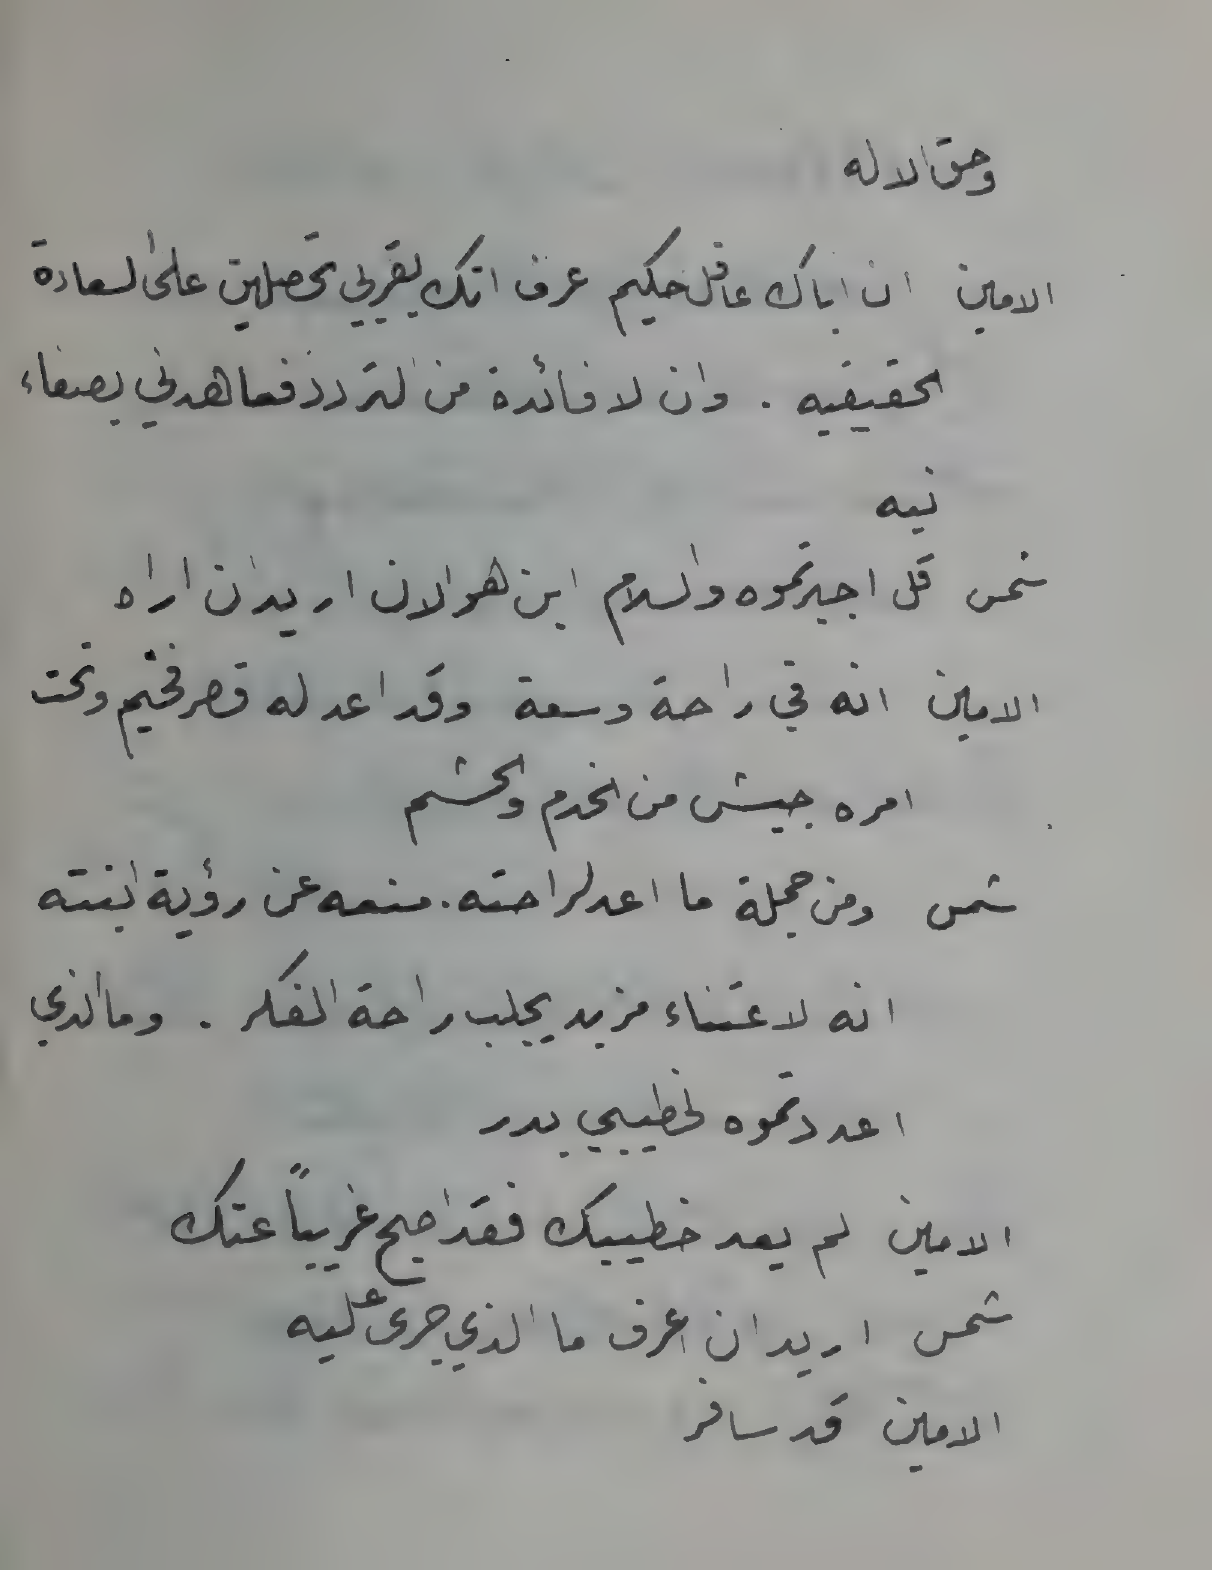 وحق الاله
الامين ان اباك عاقل حكيم عرف انك بقربي تحصلين على السعادة
الحقيقيه . وان لا فائدة من التردد فعاهدني بصفاء
نيه
شمس قل اجبرتموه والسلام اين هو الان اريد ان اراه
الامين انه في راحة وسعة وقد اعد له قصر فخيم وتحت
امره جيش من الخدم والحشم
شمس ومن جملة ما اعد لراحته . منعه عن رؤية ابنته
انه لاعتناء مزيد يجلب راحة الفكر . وما الذي
اعددتموه لخطيبي بدر
الامين لم يعد خطيبك فقد اصبح غريباً عنك
شمس اريد ان اعرف ما الذي جرى عليه
الامين قد سافر